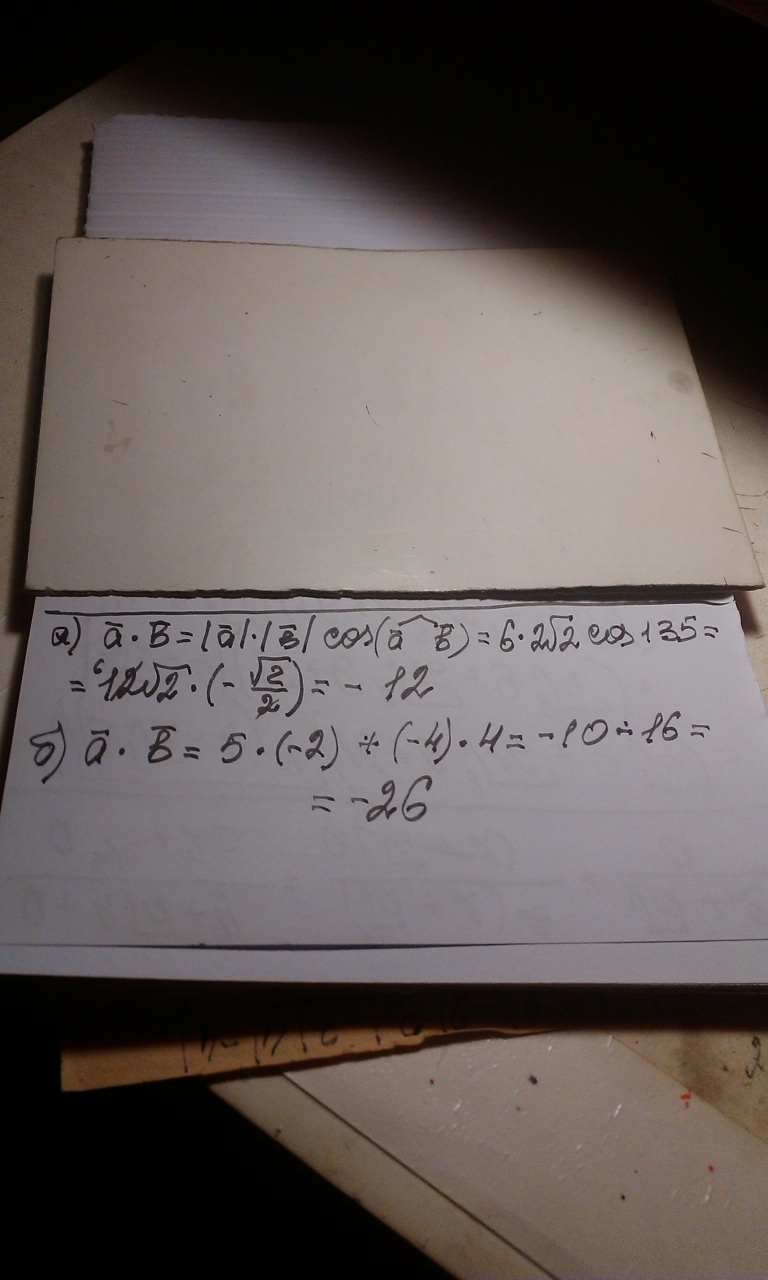 а) ā · b̄ = |ā| · |b̄| cos(ā ^ b̄) = 6 · 2√2 cos 135 =
= 12√2 · (- √2/2) = - 12
б) ā · b̄ = 5 · (-2) + (-4) · 4 = -10 - 16 =
= -26